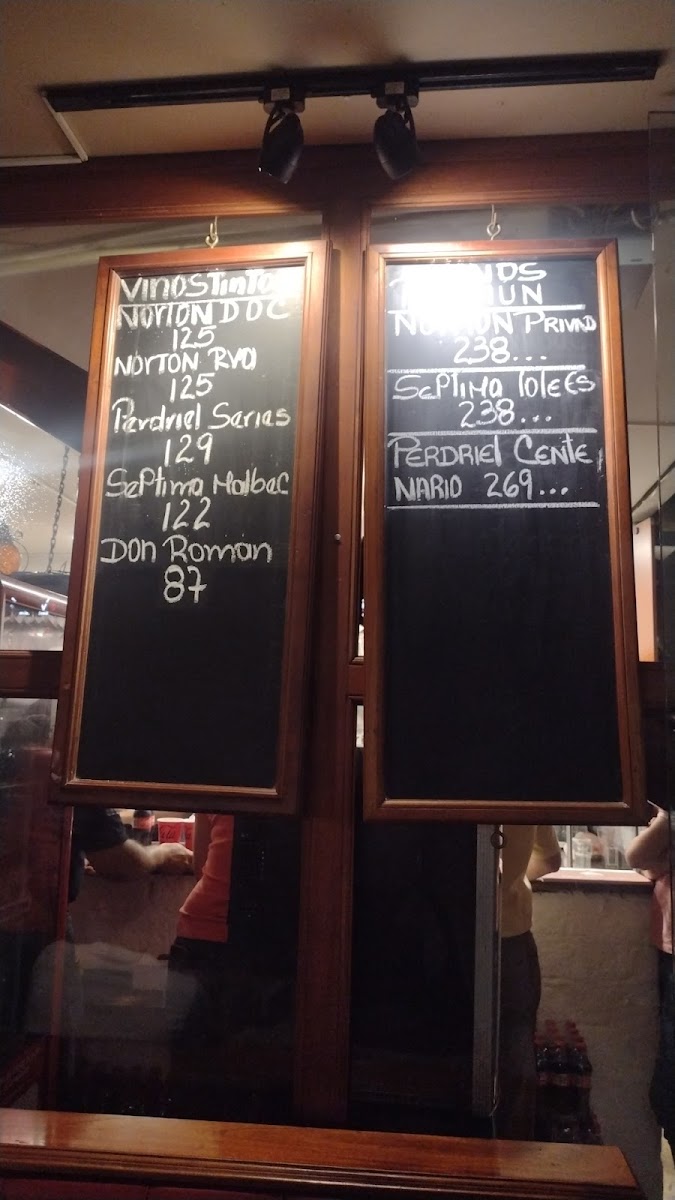 VINOS TINTO
NORTON D O C
125
NORTON RVA
125
Perdriel Series
129
SePtima Malbec
122
DON Roman
87
NORTON PRIVAD
238...
SePtima
238...
PERDRIEL CENTE,
NARIO 269...